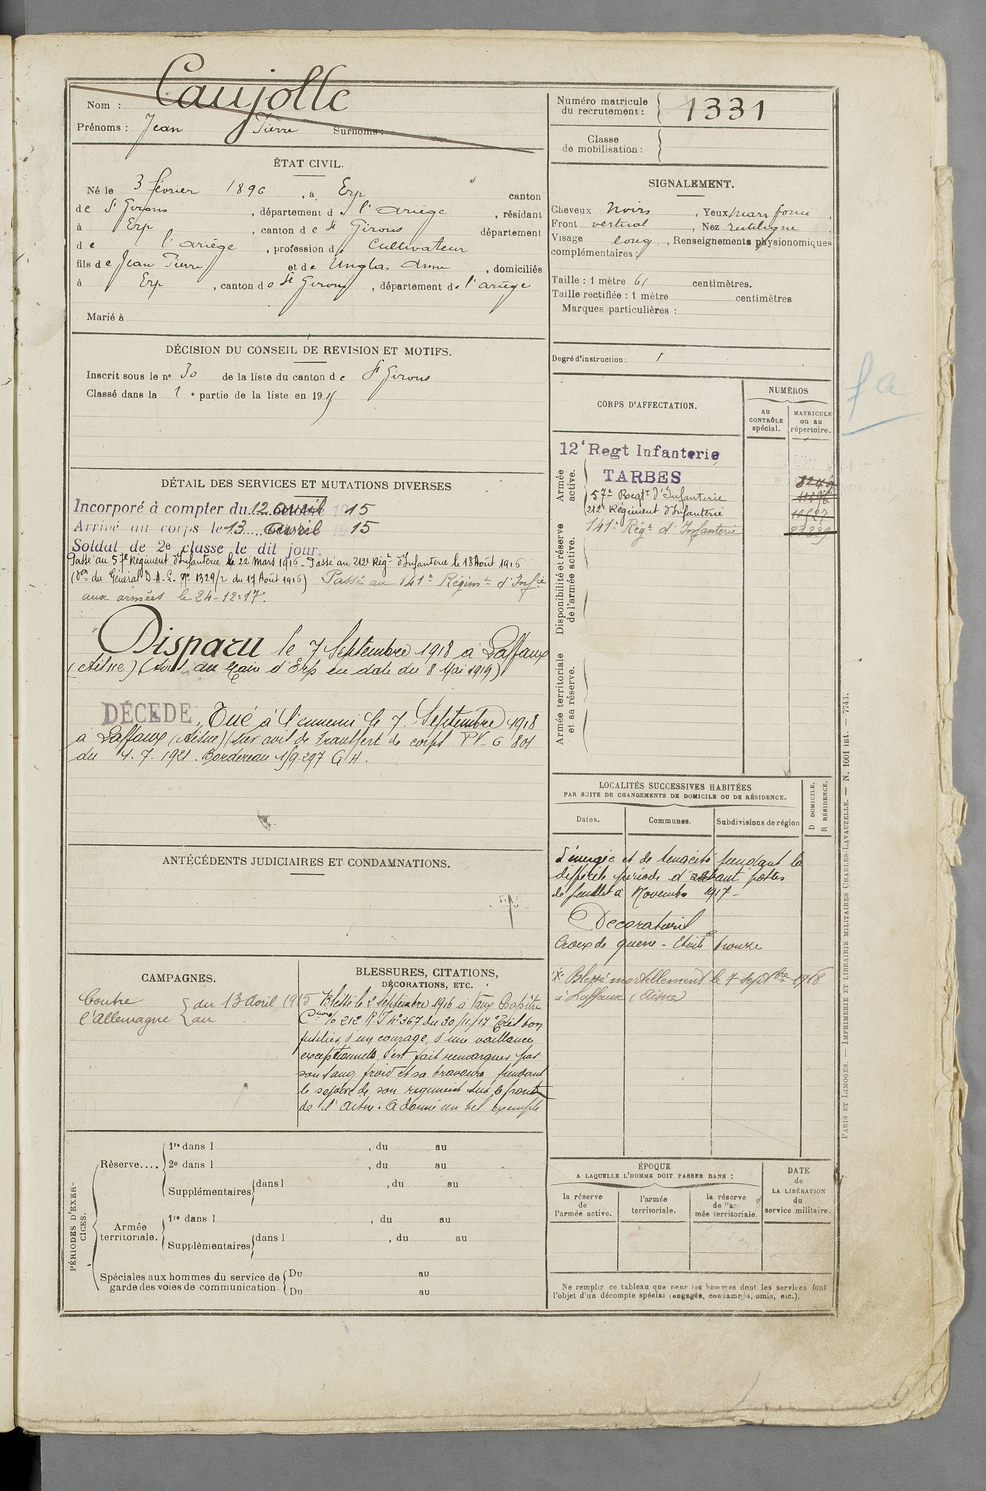 Nom : Caujolle
Prénoms : Jean Pierre Surnoms :
ÉTAT CIVIL.
Né le 3 février 1896, à Erp canton
de St Girons, département de l'ariège, résidant
à Erp, canton de St Girons département
de l'ariège, profession de Cultivateur
fils de Jean Pierre et de Ungla Anne, domiciliés
à Erp, canton de St Girons, département de l'ariège
Marié à
DÉCISION DU CONSEIL DE REVISION ET MOTIFS.
Inscrit sous le n° 30 de la liste du canton de St Girons
Classé dans la 1e partie de la liste en 1915
DÉTAIL DES SERVICES ET MUTATIONS DIVERSES
Incorporé à compter du 12 avril 1915
Arrivé au corps le 13 avril 1915
Soldat de 2e classe le dit jour.
Passé au 57e Régiment d'Infanterie le 22 mars 1916. Passé au 212e Rég. d'Infanterie le 18 Août 1916
( du Général D.A.E. N° 1329/2 du 17 Août 1916) Passé au 141e Régimt d'Infie
aux armées le 24-12-17.
Disparu le 7 Septembre 1918 à Laffaux
(Aisne) (Avis du Maire d'Erp en date du 8 Mai 1919)
DÉCÉDÉ, Tué à l'ennemi le 7 Septembre 1918
à Laffaux (Aisne) sur avis de transfert de corps PV. G 801
du 4.7.1921. Bordereau 9297 GH.
ANTÉCÉDENTS JUDICIAIRES ET CONDAMNATIONS.
CAMPAGNES.
Contre l'allemagne { du 13 avril 1915
au
BLESSURES, CITATIONS,
DÉCORATIONS, ETC.
Blessé le 2 septembre 1916 à Vaux Chapitre
212e R.I N°367 du 30/11/17 Très bon
fusilier d'un courage, d'une vaillance
exceptionnelle, s'est fait remarquer par
son sang froid et sa bravoure pendant
le séjour de son régiment sur le front
de l'Aisne. A donné un bel exemple
PÉRIODES D'EXERCICES.
Réserve....
1re dans l , du au
2e dans l , du au
Supplémentaires dans l , du au
Armée territoriale.
1re dans l , du au
Supplémentaires dans l , du au
Spéciales aux hommes du service de garde des voies de communication
Du au
Du au
Numéro matricule du recrutement : 1331
Classe de mobilisation :
SIGNALEMENT.
Cheveux Noirs, Yeux marr foncé
Front vertical, Nez rectiligne
Visage long, Renseignements physionomiques
complémentaires :
Taille : 1 mètre 61 centimètres.
Taille rectifiée : 1 mètre centimètres
Marques particulières :
Degré d'instruction : 1
CORPS D'AFFECTATION.
NUMÉROS
au CONTRÔLE spécial.
MATRICULE ou au répertoire.
Armée active.
12e Regt Infanterie
TARBES
57e Regt d'Infanterie
212e Régiment d'Infanterie
141e Régt d'Infanterie
Disponibilité et réserve de l'armée active.
Armée territoriale et sa réserve.
fa
LOCALITÉS SUCCESSIVES HABITÉES
PAR SUITE DE CHANGEMENTS DE DOMICILE OU DE RÉSIDENCE.
Dates.
Communes.
Subdivisions de région
D DOMICILE.
R RÉSIDENCE.
d'énergie et de ténacité pendant la
période d'avant postes
de Juillet à Novembre 1917 -
Décorations
Croix de guerre - Etoile bronze
* Blessé mortellement le 7 septbre 1918
à Laffaux (Aisne)
ÉPOQUE
A LAQUELLE L'HOMME DOIT PASSER DANS :
la réserve de l'armée active.
l'armée territoriale.
la réserve de l'armée territoriale.
DATE de LA LIBÉRATION du service militaire.
Ne remplir ce tableau que pour les hommes dont les services font
l'objet d'un décompte spécial (engagés, condamnés, omis, etc.).
PARIS ET LIMOGES. — IMPRIMERIE ET LIBRAIRIE MILITAIRES CHARLES-LAVAUZELLE. — N. 1001 int. — 7743.